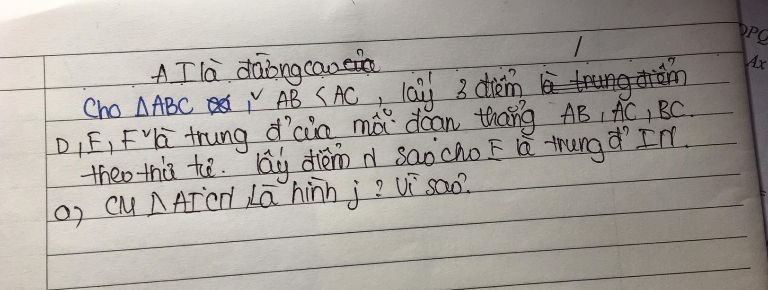 AI là đường cao của
Cho ΔABC , AB < AC , lấy 3 điểm là trung điểm
D, E, F là trung đ' của mỗi đoạn thẳng AB, AC, BC.
theo thứ tự. Lấy điểm N sao cho E là trung đ' IN.
a) CM ΔAICN Là hình j? Vì sao?
DPQ
Ax